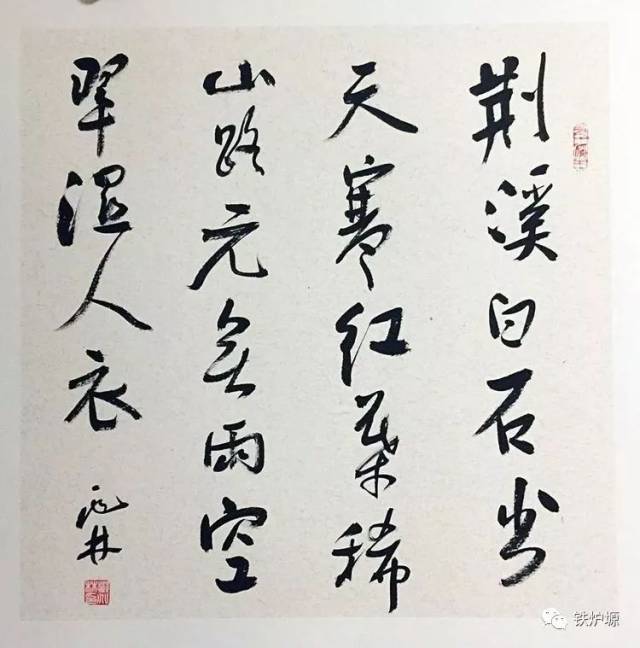 荆溪白石出
天寒红叶稀
山路元无雨空
翠湿人衣
铁炉塬